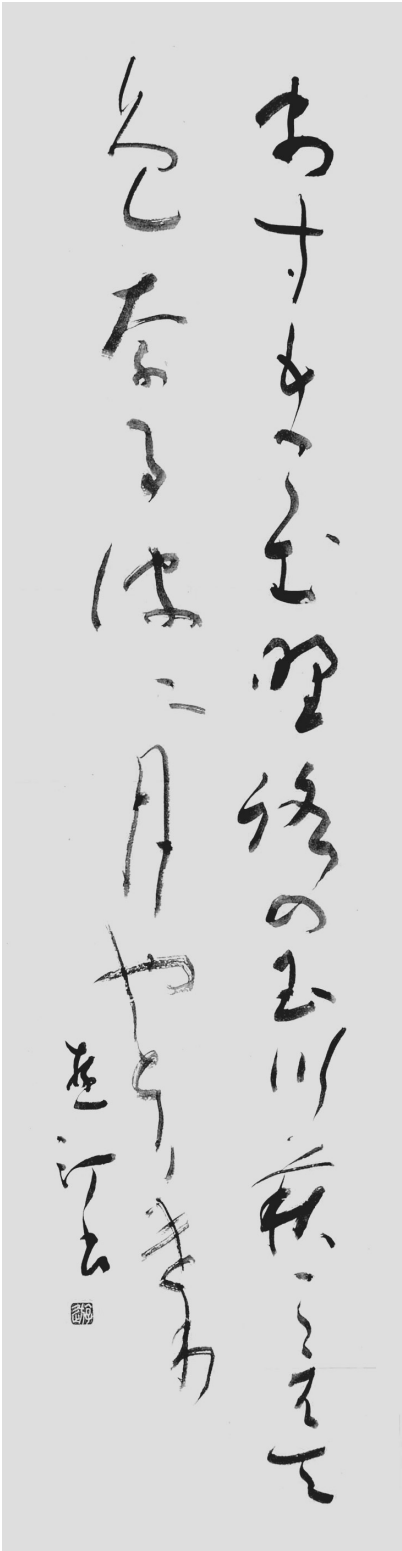 あすもこむ野路の玉川萩こえて
色なる波二月やとりけり
汀書